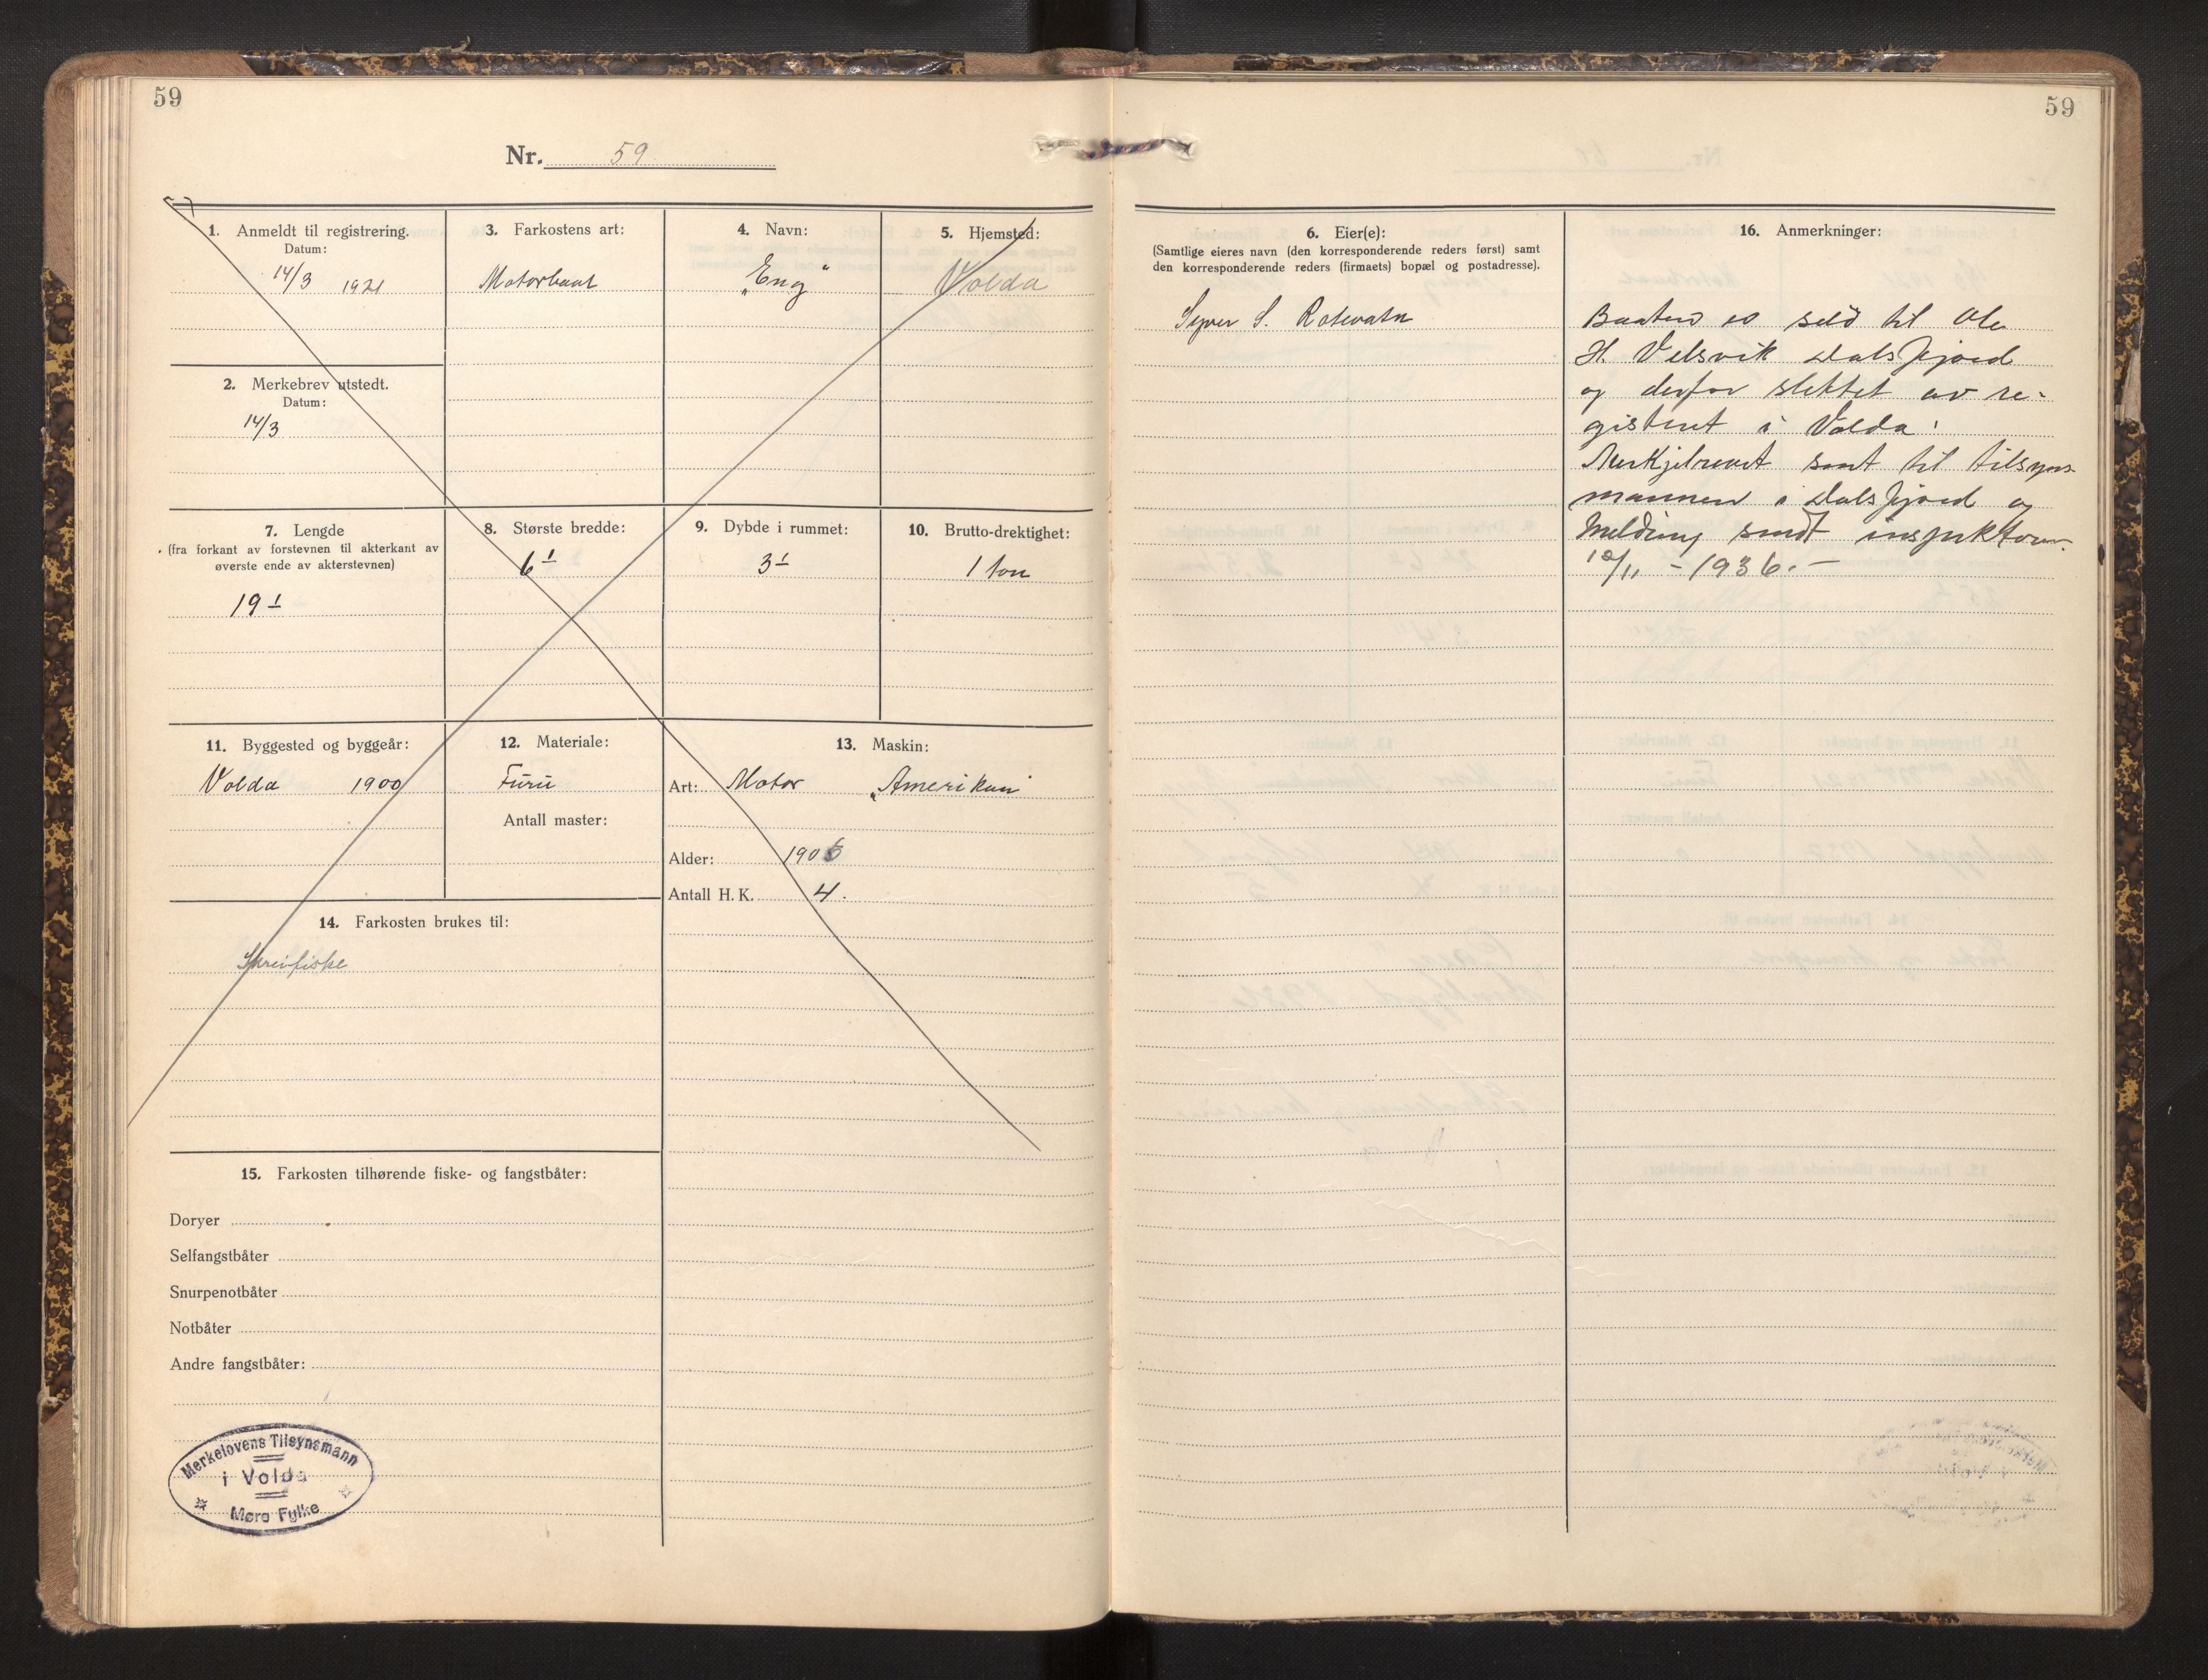 59
Nr. 59
1. Anmeldt til registrering.
Datum:
14/3 1921
2. Merkebrev utstedt.
Datum:
14/3
3. Farkostens art:
Motorbaat
4. Navn:
„Eng"
5. Hjemsted:
Volda
7. Lengde
(fra forkant av forstevnen til akterkant av
øverste ende av akterstevnen)
19 1
8. Største bredde:
6 1
9. Dybde i rummet:
3 1
10. Brutto-drektighet:
1 ton
11. Byggested og byggeår:
Volda 1900
12. Materiale:
Furu
Antall master:
13. Maskin:
Art: Motor „Amerikan"
Alder: 1906
Antall H. K. 4.
14. Farkosten brukes til:
Skreifiske
15. Farkosten tilhørende fiske- og fangstbåter:
Doryer
Selfangstbåter
Snurpenotbåter
Notbåter
Andre fangstbåter:
Merkelovens Tilsynsmann
i Volda
Møre Fylke
59
6. Eier(e):
(Samtlige eieres navn (den korresponderende reders først) samt
den korresponderende reders (firmaets) bopæl og postadresse).
Syver S. Rotevatn
16. Anmerkninger:
Baaten er seld til Ole
H. Velsvik Dalsfjord
og derfor slettet av re-
gisteret i Volda.
Merkjebrevet sent til tilsyns
mannen i Dalsfjord og
Melding sendt inspektøren.
10/11 - 1936. -